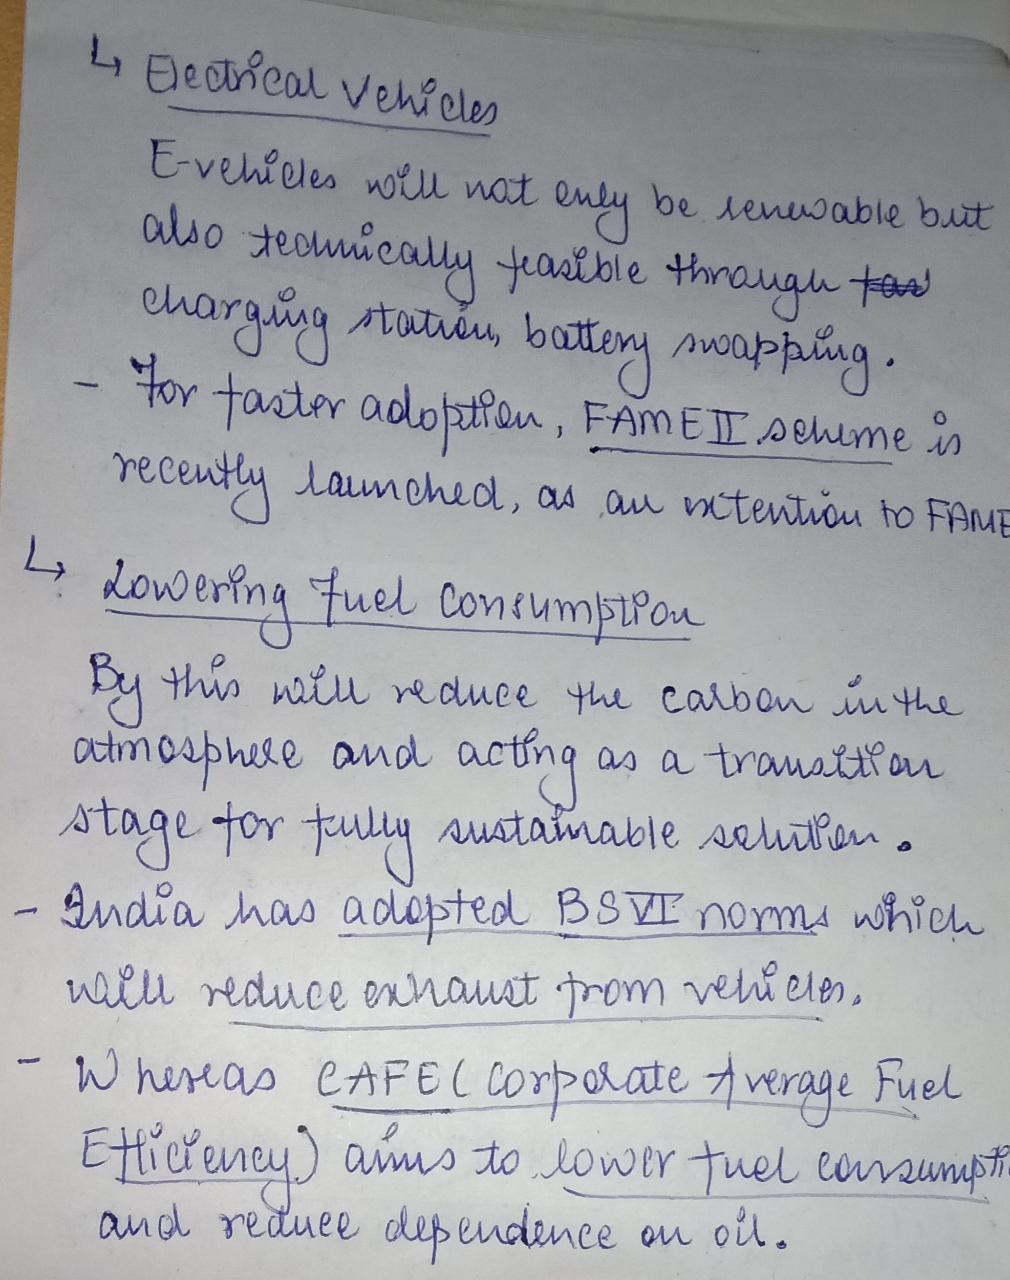 ↳ Electrical Vehicles
E-vehicles will not only be renewable but
also technically feasible through
charging station, battery swapping.
- For faster adoption, FAME II scheme is
recently launched, as an extention to FAME
↳ Lowering Fuel Consumption
By this will reduce the carbon in the
atmosphere and acting as a transition
stage for fully sustainable solution.
- India has adopted BS VI norms which
will reduce exhaust from vehicles.
- Whereas CAFE (Corporate Average Fuel
Efficiency) aims to lower fuel consumpti
and reduce dependence on oil.